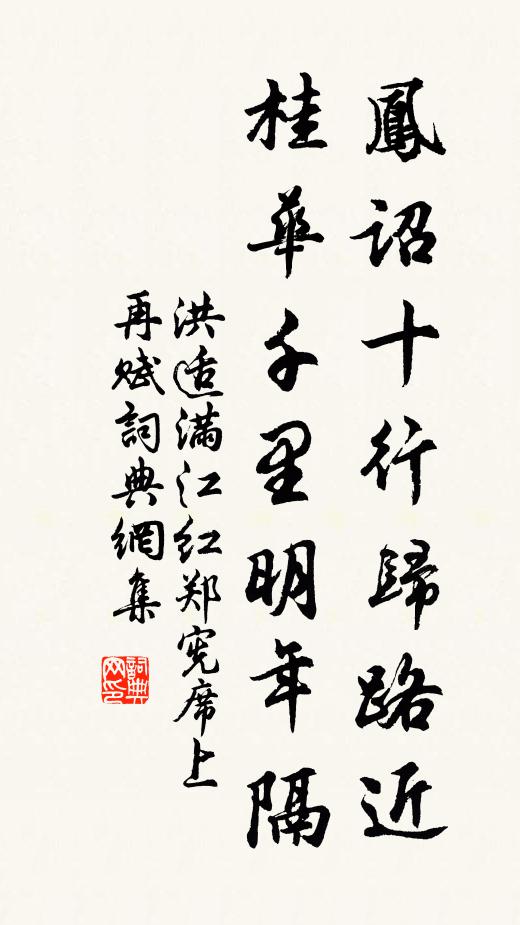 鳳詔十行歸路近
桂華千里明年隔
洪适滿江红郑宪席上
再赋詞典網集
詞典網印